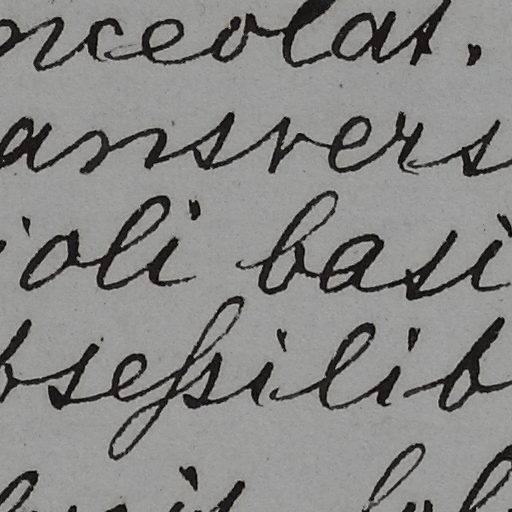 nceolat.
ansvers
ioli basi
bseſsilib